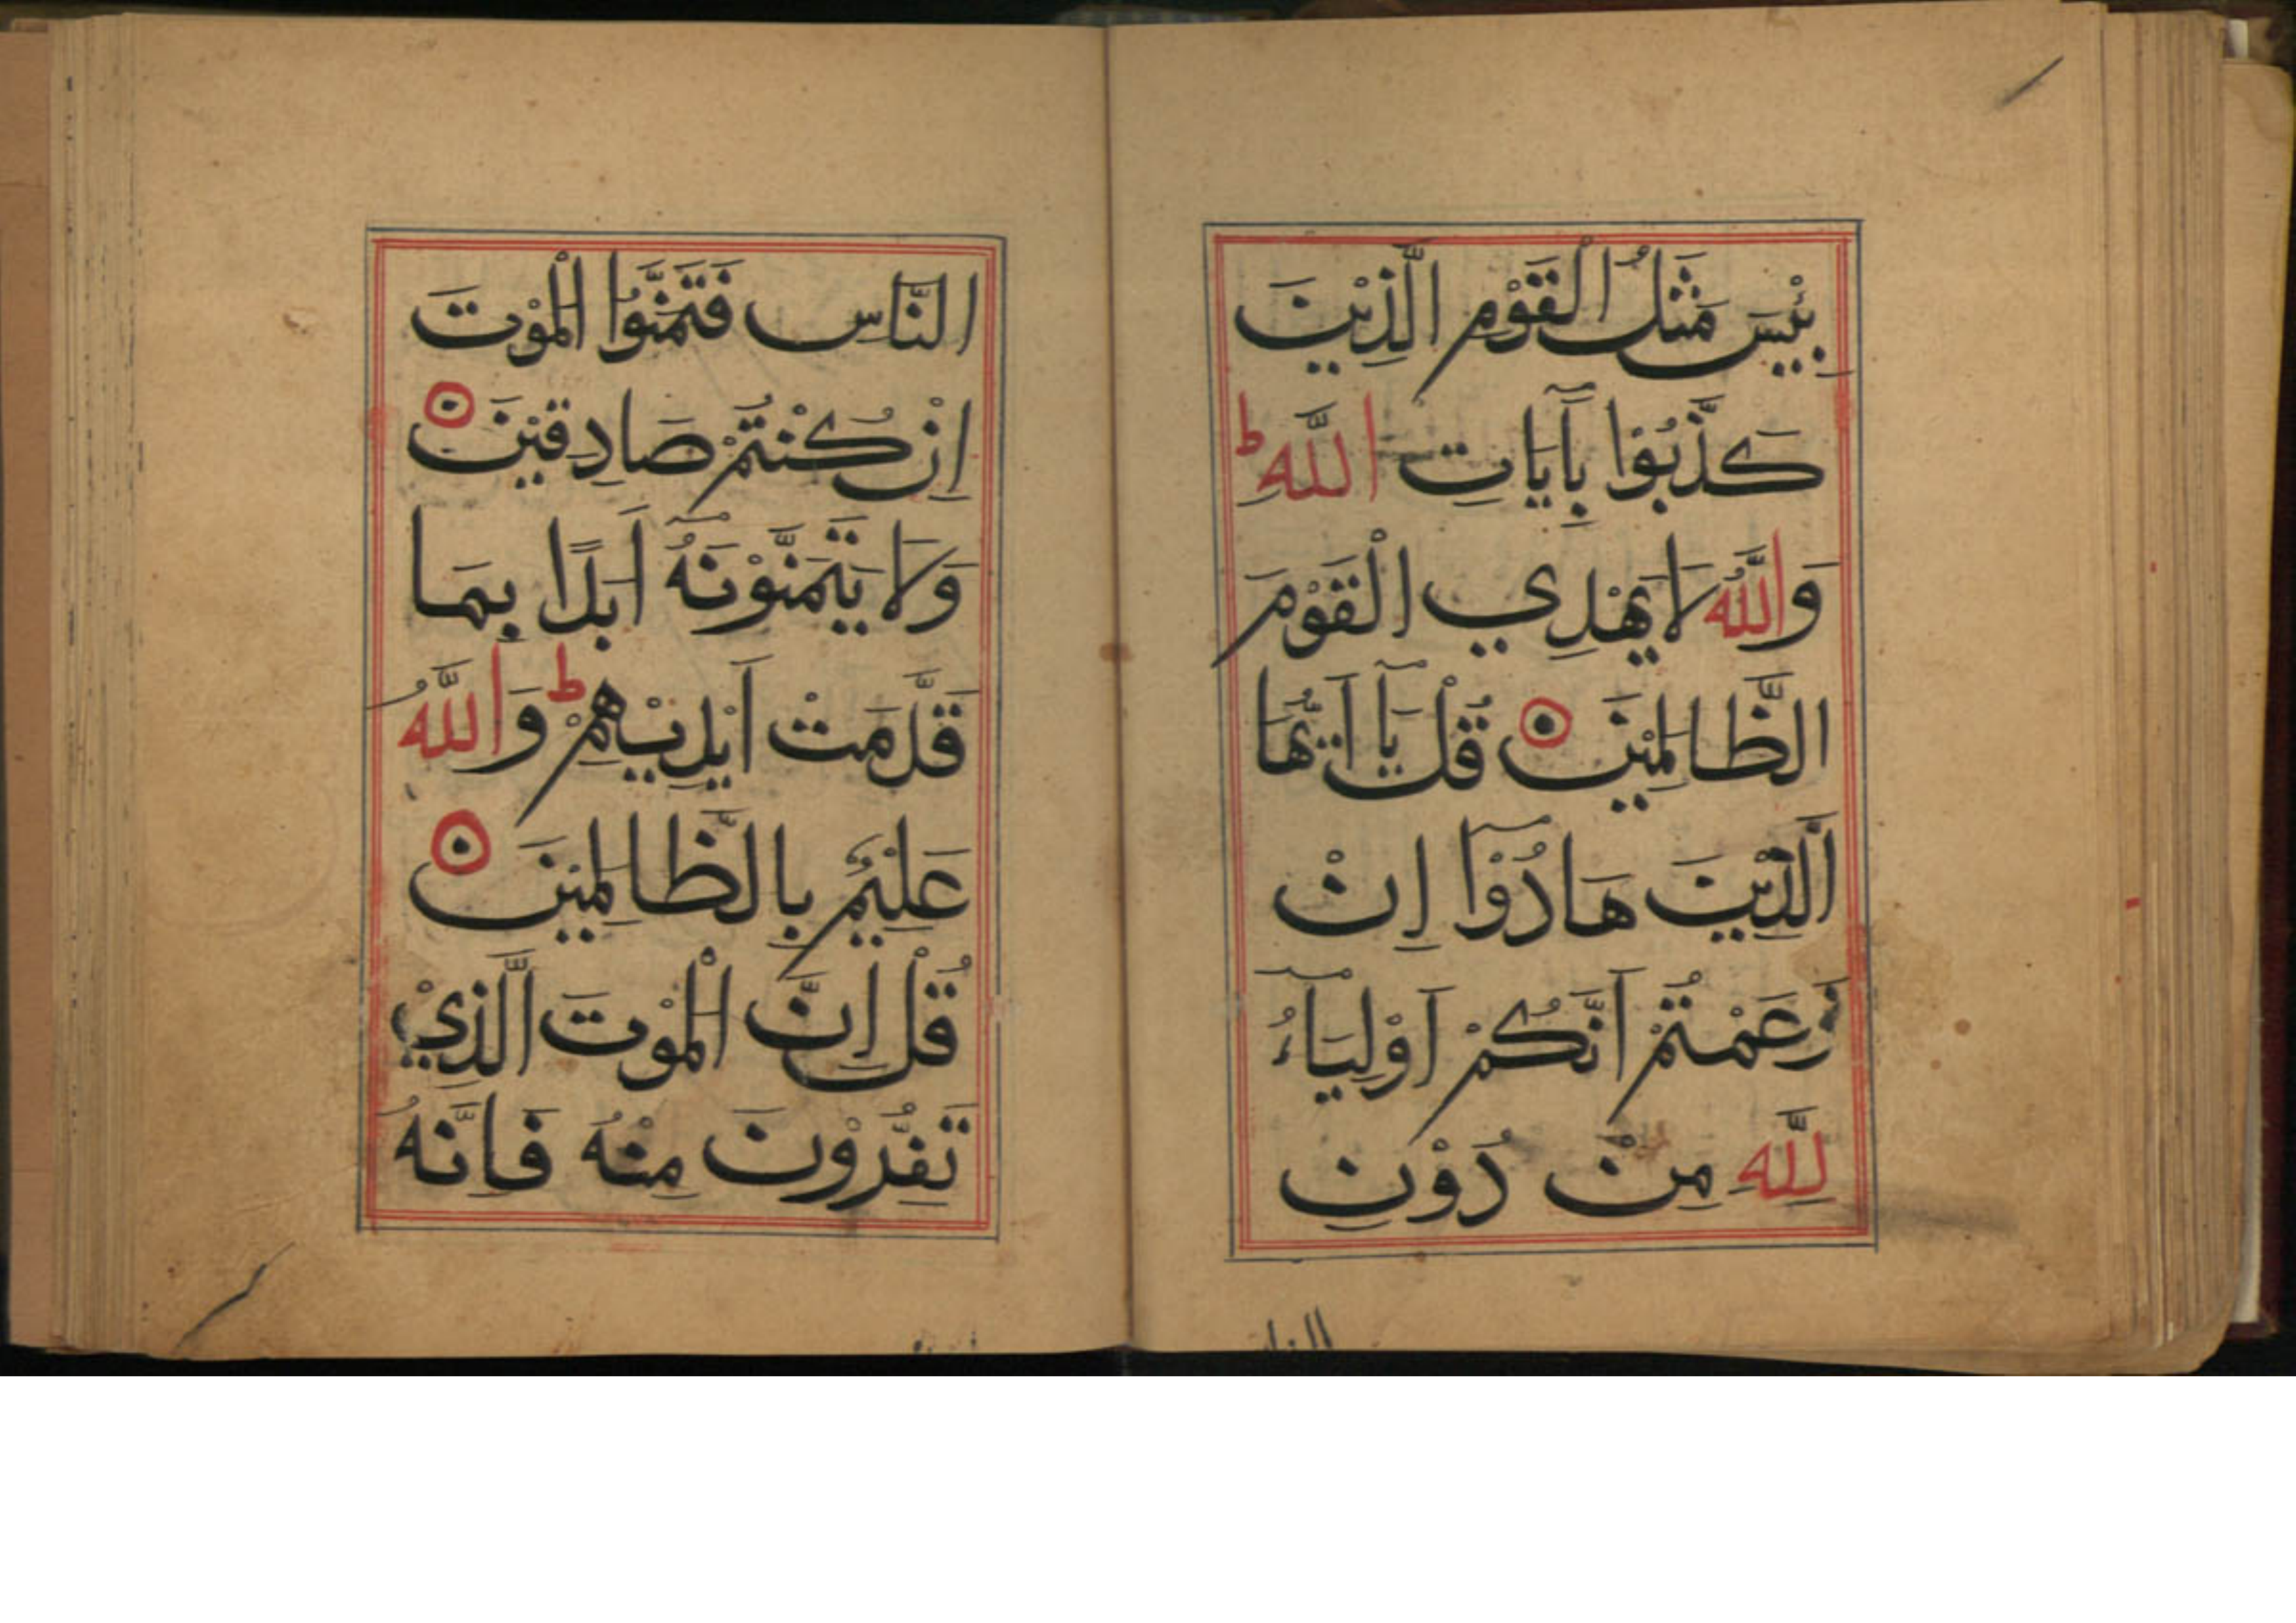 بِئْسَ مَثَلُ الْقَوْمِ الَّذِيْنَ
كَذَّبُوْا بِآيَاتِ اللَّهِ ط
وَاللَّهُ لَا يَهْدِي الْقَوْمَ
الظَّالِمِيْنَ قُلْ يَآ اَيُّهَا
الَّذِيْنَ هَادُوْٓا اِنْ
زَعَمْتُمْ اَنَّكُمْ اَوْلِيَآءُ
لِلَّهِ مِنْ دُوْنِ
النَّاسِ فَتَمَنَّوُا الْمَوْتَ
اِنْ كُنْتُمْ صَادِقِيْنَ
وَلَا يَتَمَنَّوْنَهُٓ اَبَدًا بِمَا
قَدَّمَتْ اَيْدِيْهِمْ ط وَاللَّهُ
عَلِيْمٌ بِالظَّالِمِيْنَ
قُلْ اِنَّ الْمَوْتَ الَّذِيْ
تَفِرُّوْنَ مِنْهُ فَاِنَّهُ